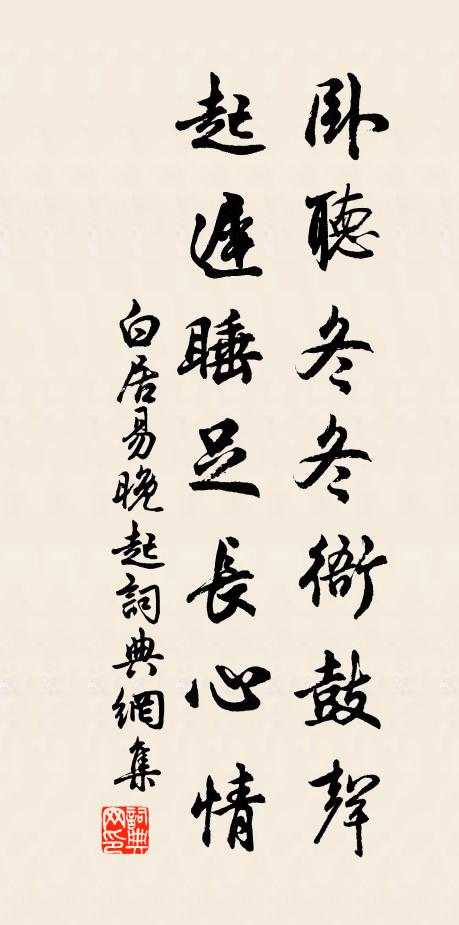 卧聽冬冬衙鼓聲
起遲睡足長心情
白居易晚起詞典網集
詞典網印